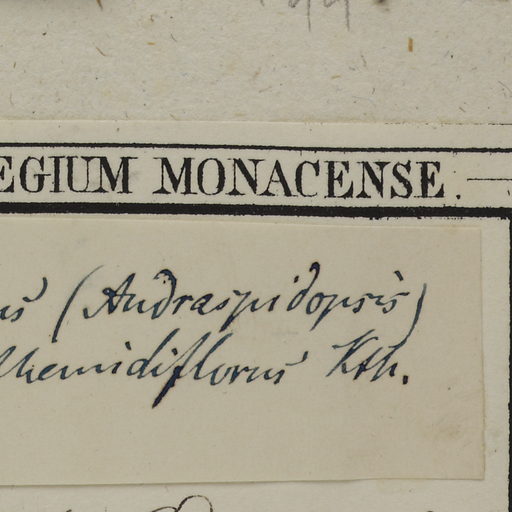 EGIUM MONACENSE.
us (Andraspidopsis)
themidiflorus Kth.